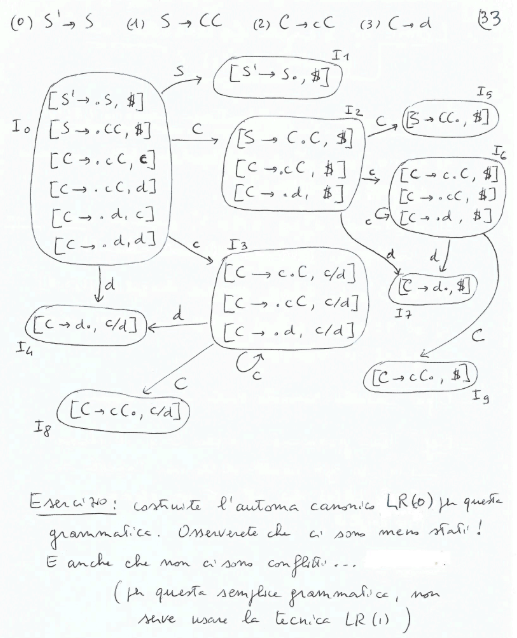 (0) S' → S (1) S → CC (2) C → cC (3) C → d 33
I0
[S' → .S, $]
[S → .CC, $]
[C → .cC, c]
[C → .cC, d]
[C → .d, c]
[C → .d, d]
S
[S' → S., $]
I1
C
I2
[S → C.C, $]
[C → .cC, $]
[C → .d, $]
C
[S → CC., $]
I5
c
I6
[C → c.C, $]
[C → .cC, $]
[C → .d, $]
c
c
I3
[C → c.C, c/d]
[C → .cC, c/d]
[C → .d, c/d]
c
d
d
[C → d., $]
I7
d
[C → d., c/d]
I4
d
C
[C → cC., $]
I9
C
[C → cC., c/d]
I8
Esercizio: costruite l'automa canonico LR(0) per questa
grammatica. Osserverete che ci sono meno stati!
E anche che non ci sono conflitti...
(per questa semplice grammatica, non
serve usare la tecnica LR(1))